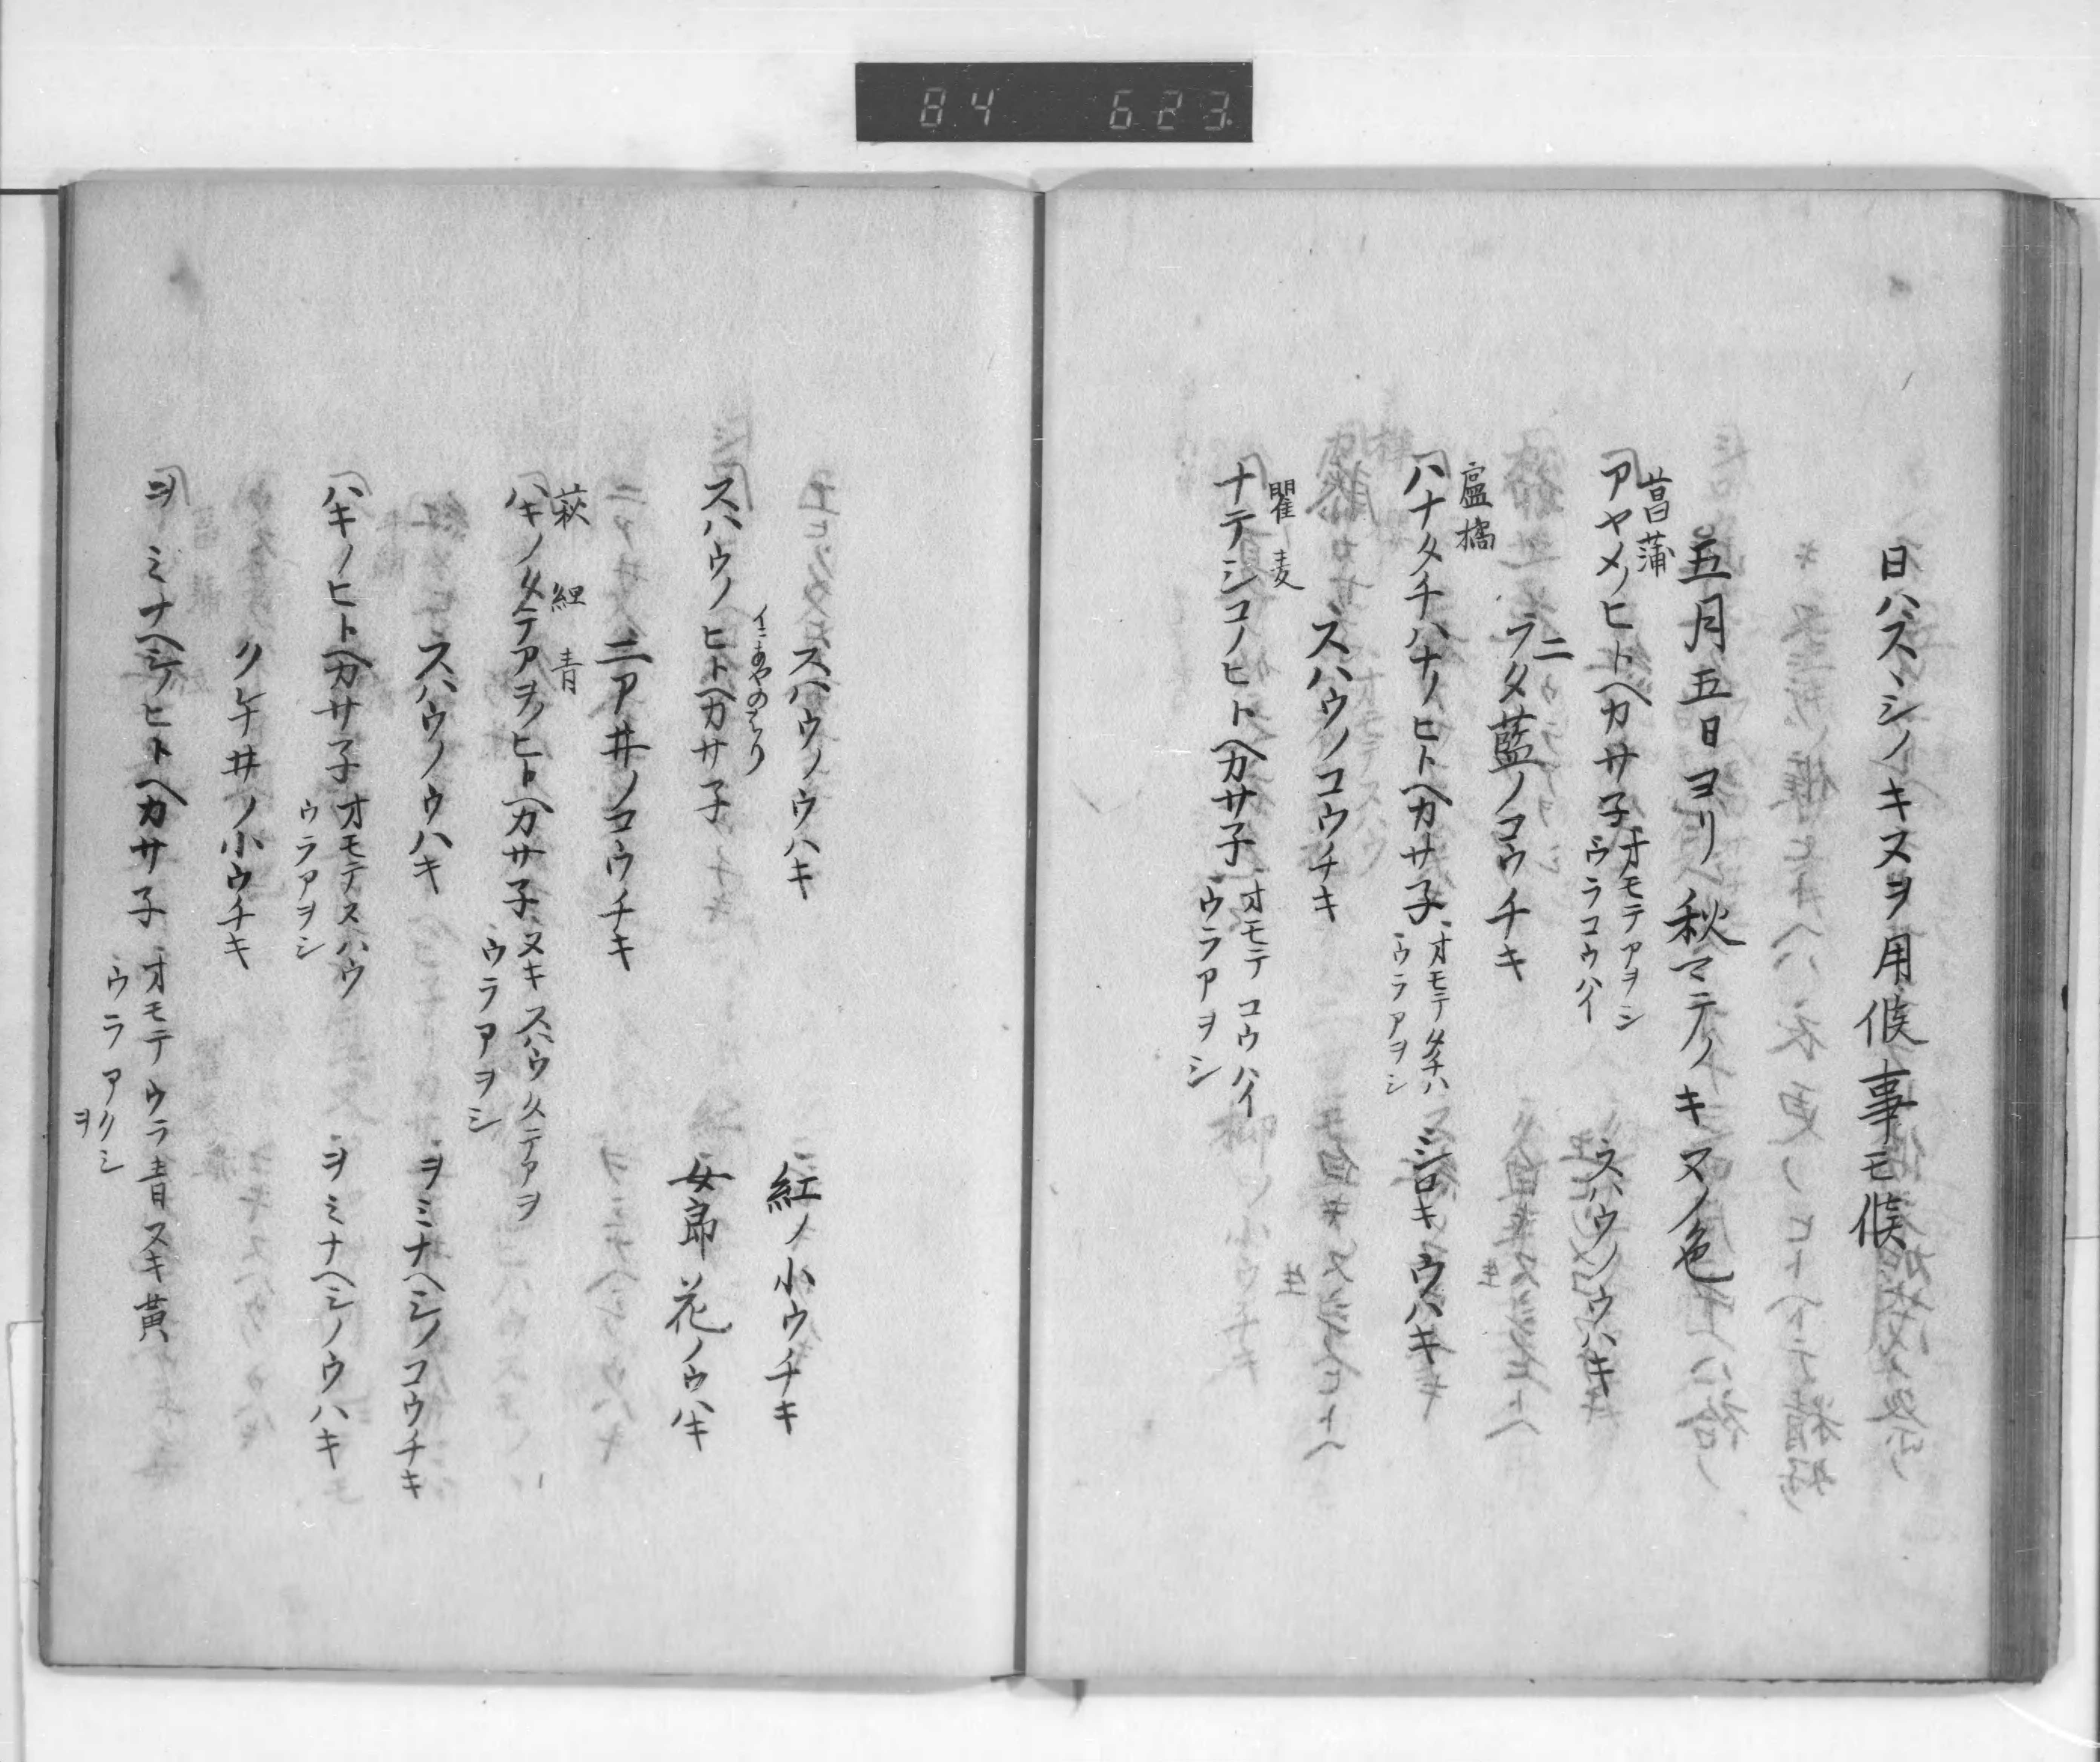 84 623
日ハスヽシノキヌヲ用候事モ候
五月五日ヨリ秋マテノキヌノ色
菖蒲
アヤメノヒトヘカサ子 オモテアヲシ ウラコウハイ スハウノウハキ
二
ラタ藍ノコウチキ
盧橘
ハナタチハナノヒトヘカサ子 オモテタチハ ウラアヲシ シロキウハキ
スハウノコウチキ
瞿麦
ナテシコノヒトヘカサ子 オモテコウハイ ウラアヲシ
スハウノウハキ 紅ノ小ウチキ
スハウノヒトヘカサ子 女郎花ノウハキ
ニアヰノコウチキ
萩 経 青
ハキノタテアヲノヒトヘカサ子 ヌキスハウタテアヲ ウラアヲシ
スハウノウハキ ヲミナヘシノコウチキ
ハキノヒトヘカサ子 オモテスハウ ウラアヲシ ヲミナヘシノウハキ
クレナ井ノ小ウチキ
ヲミナヘシノヒトヘカサ子 オモテウラ青ヌキ黄 ウラアクシ
ヲ